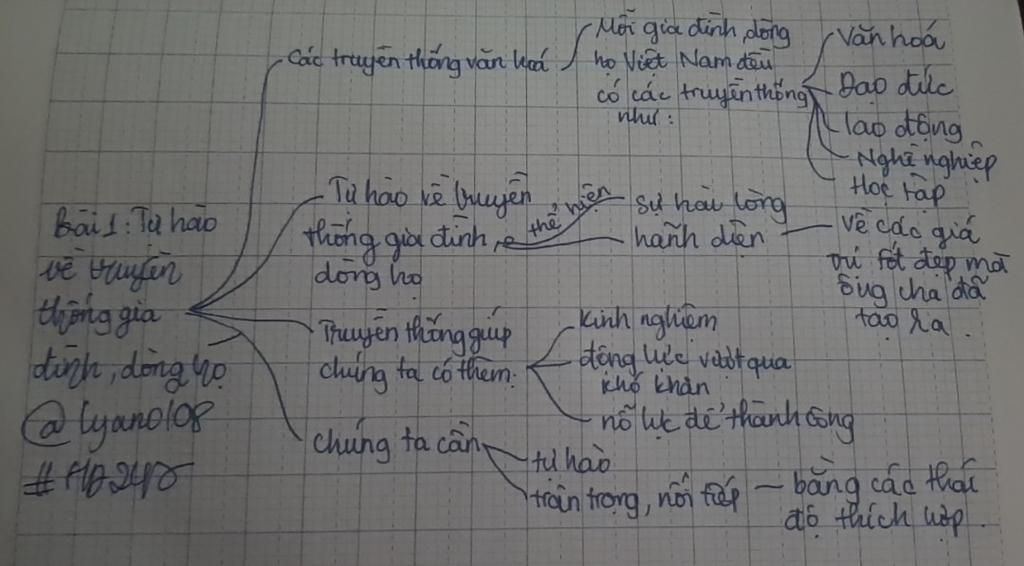 Bài 1: Tự hào
về truyền
thống gia
đình, dòng họ
@lyano108
Các truyền thống văn hoá
Mỗi gia đình, dòng
họ Việt Nam đều
có các truyền thống
như:
Văn hoá
Đạo đức
lao động
Nghề nghiệp
Học tập
Tự hào về truyền
thống gia đình,
dòng họ
thể hiện
sự hài lòng
hãnh diện
về các giá
trị tốt đẹp mà
ông cha đã
tạo ra.
Truyền thống giúp
chúng ta có thêm:
kinh nghiệm
động lực vượt qua
khó khăn
nỗ lực để thành công
chúng ta cần
tự hào
trân trọng, nối tiếp
bằng các thái
độ thích hợp.